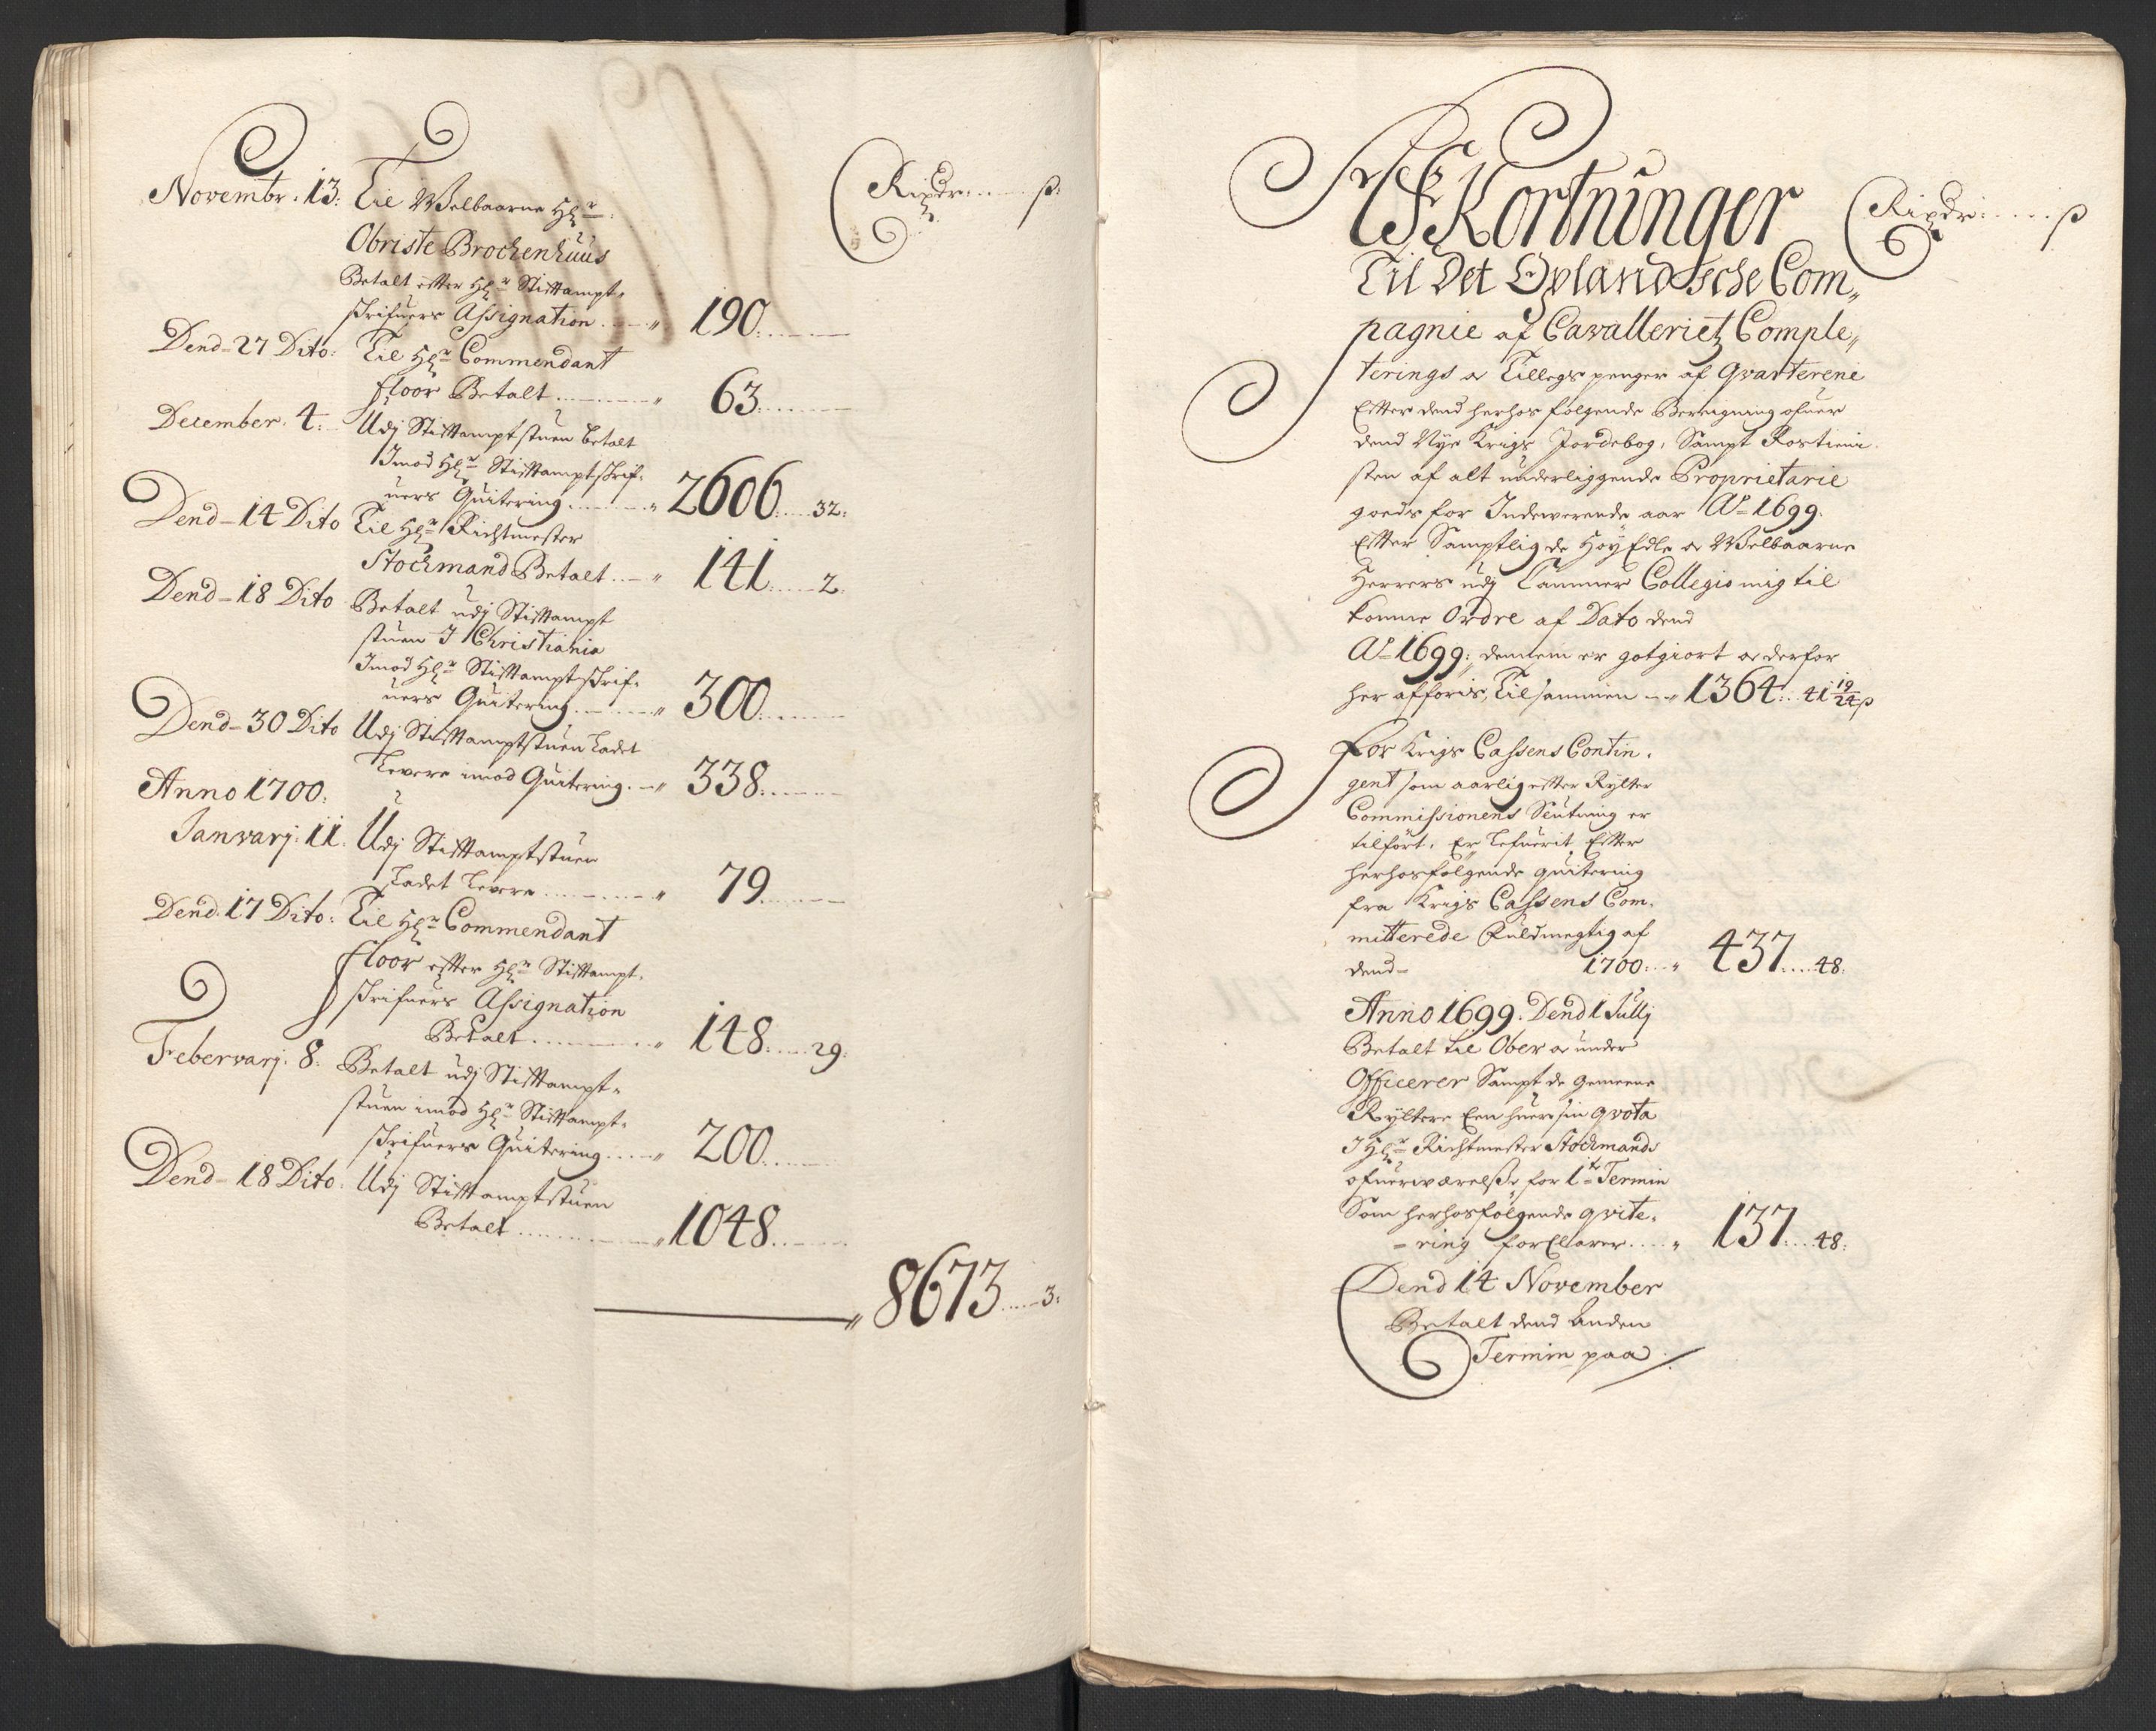 Rixdr. ß:
Novembr. 13: Til Welbaarne Hr.
Obriste Brochenhuus
Betalt efter Hr. Stiftampt-
skrifuers Assignation " 190:
Dend-27 Dito: Til Hr. Commendant
floor Betalt " 63:
December. 4: Udj Stiftamptstuen betalt
Imod Hr. Stiftamptskrif-
uers Quitering " 2606: 32:
Dend-14 Dito Til Hr. Richtmester
Stochmand Betalt " 141: 2:
Dend-18 Dito Betalt udj Stiftampt
stuen I Christiania
Imod Hr. Stiftamptskrif-
uers Quitering " 300:
Dend-30 Dito Udj Stiftamptstuen Ladet
Levere imod Quitering " 338:
Anno 1700:
Janvarj: 11. Udj Stiftamptstuen
Ladet Levere " 79:
Dend. 17 Dito: Til Hr. Commendant
floor efter Hr. Stiftampt-
skrifuers Assignation
Betalt " 148: 29:
Febervarj. 8: Betalt udj Stiftampt-
stuen imod Hr. Stiftampt-
skrifuers Quitering " 200:
Dend-18 Dito: Udj Stiftamptstuen
Betalt " 1048:
" 8673 3:
Afkortninger Rixdr: ß
Til Det Oplandsche Com„
pagnie af Cavalleriet, Comple„
terings oc Tillegs penger af Qvarterene
Efter dend herhos følgende Beregning ofuer
dend Nye Krigs Jordebog, Sampt Rostieni-
sten af alt underliggende Proprietarie
goeds for Indewerende aar Ao 1699.
Efter Samptlig de Høy Edle oc Welbaarne
Herrers udj Cammer Collegio mig til
komne Ordre af Dato dend
Ao 1699: dennem er gotgiort oc derfor
her afføris, Tilsammen " 1364: 41 19/24 ß
For Krigs Cassens Contin-
gent som aarlig efter Rytter
Commissionens Slutning er
tilført, Er Lefuerit Efter
herhosfølgende quitering
fra Krigs Cassens Com-
mitterede Fuldmegtig af
dend- 1700: " 437: 48:
Anno 1699. Dend 1 Julij
Betalt til Ober oc under
Officerer Sampt de gemeene
Ryttere Een huer sin qvota
I Hr. Richtmester Stochmands
ofuerwærelsse for 1te Termin
Som herhosfølgende qvite-
-ring forklarer " 137: 48:
Dend 14 November
Betalt dend anden
Termin paa